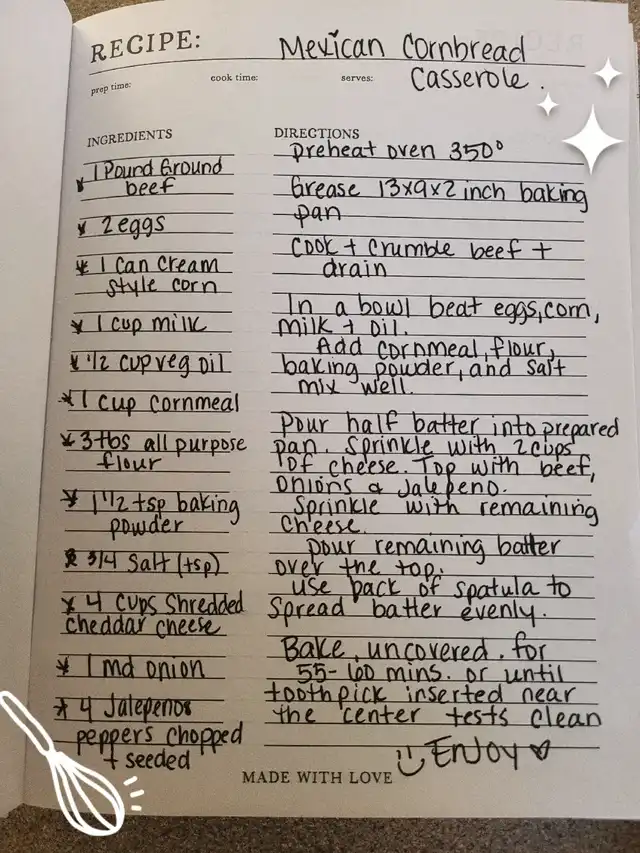 RECIPE: Mexican Cornbread
Casserole.
prep time: cook time: serves:
INGREDIENTS
1 Pound Ground
beef
2 eggs
1 Can Cream
style corn
1 cup milk
1/2 cup veg oil
1 cup cornmeal
3 tbs all purpose
flour
1 1/2 tsp baking
powder
3/4 Salt (tsp)
4 cups Shredded
cheddar cheese
1 md onion
4 Jalepenos
peppers chopped
+ seeded
DIRECTIONS
Preheat oven 350°
Grease 13x9x2 inch baking
pan
Cook + Crumble beef +
drain
In a bowl beat eggs, corn,
milk + oil.
Add cornmeal, flour,
baking powder, and salt
mix well.
Pour half batter into prepared
pan. Sprinkle with 2 cups
of cheese. Top with beef,
onions & Jalepeno.
Sprinkle with remaining
cheese.
Pour remaining batter
over the top.
use back of spatula to
Spread batter evenly.
Bake, uncovered. for
55-60 mins. or until
toothpick inserted near
the center tests clean
ENJOY ♡
MADE WITH LOVE